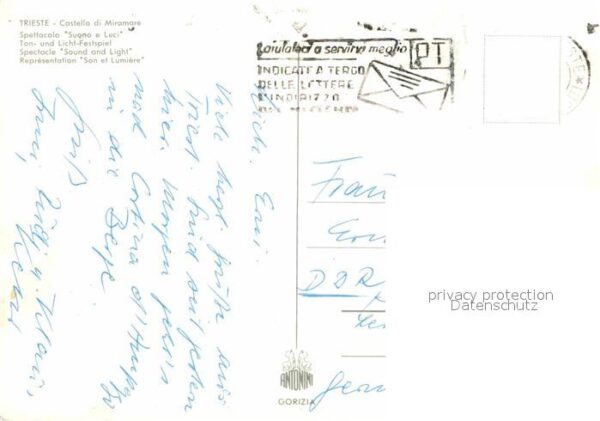 TRIESTE - Castello di Miramare
Spettacolo "Suono e Luci"
Ton- und Licht-Festspiel
Spectacle "Sound and Light"
Représentation "Son et Lumière"
aiutateci a servirvi meglio
PT
INDICATE A TERGO
DELLE LETTERE
L'INDIRIZZO
Liebe Erni.
Viele herzl. Grüße aus
Triest. Sind seit gestern
hier. Morgen geht's
nach Cortina d'Ampezzo
in die Berge
Gruß
Frau
DDR
privacy protection
Datenschutz
ANTONINI
GORIZIA